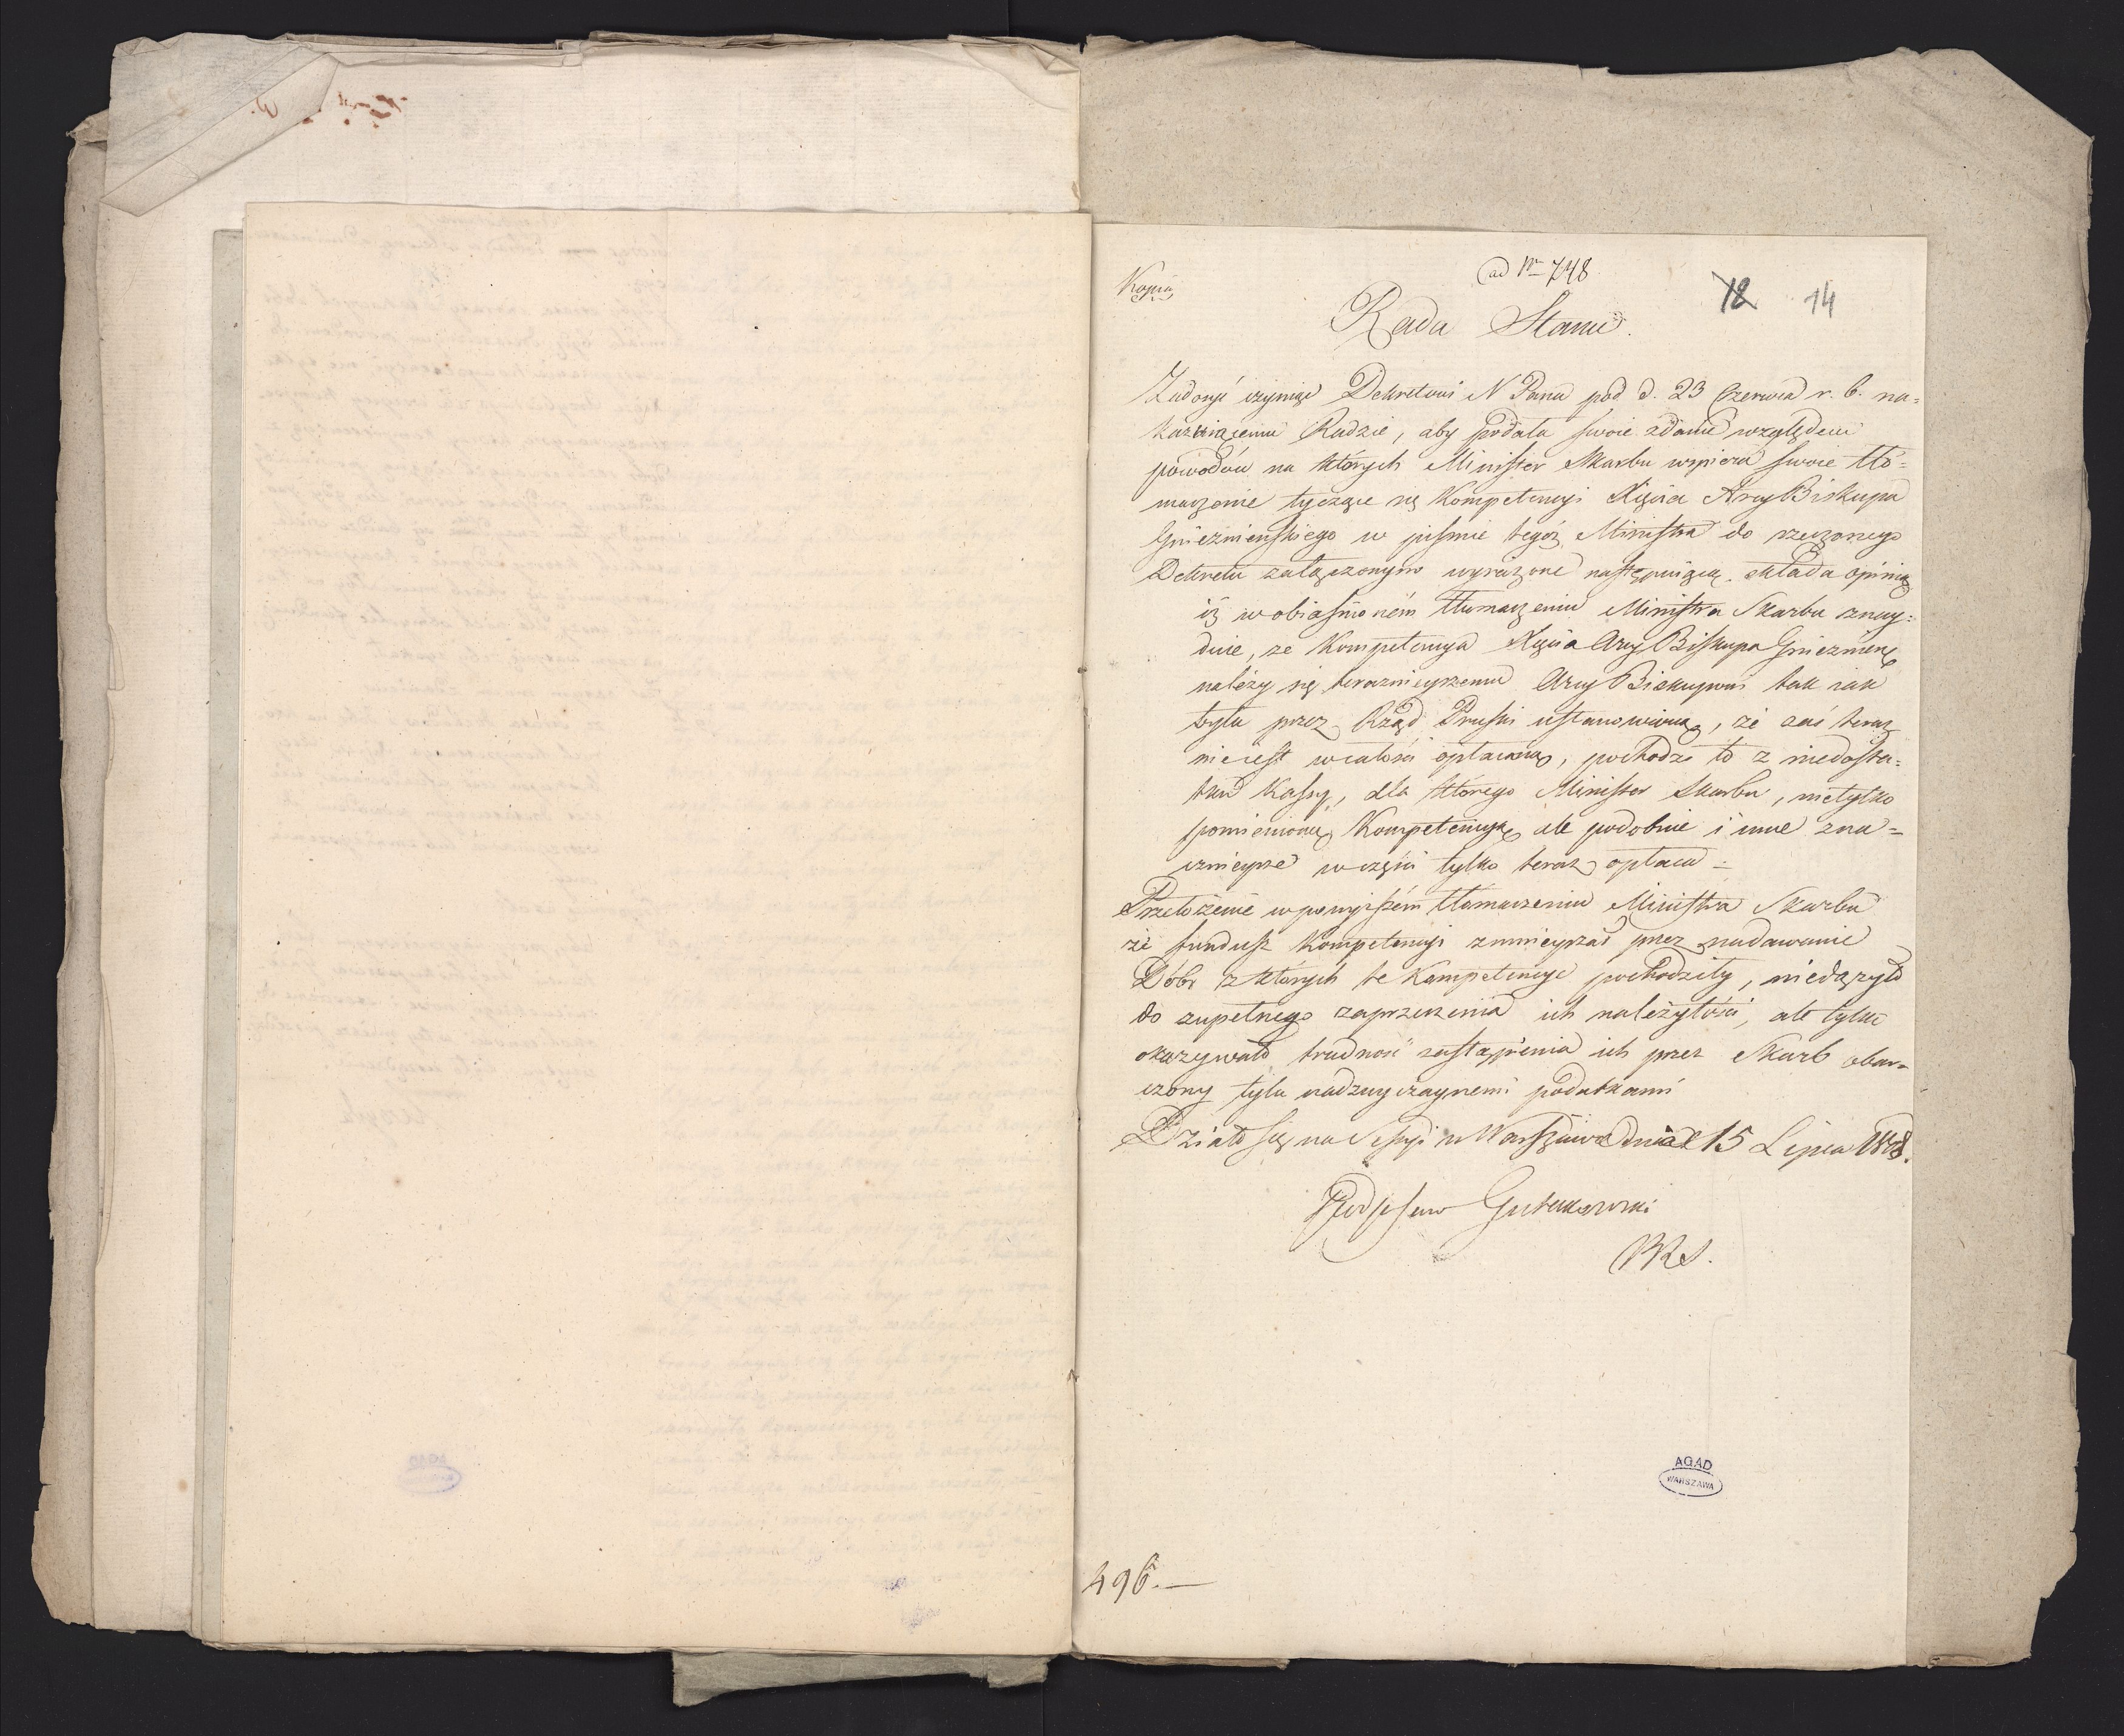 ad Nr 748
Kopia
18 14
Rada Stanu.
Zadosyć czyniąc Dekretowi N Pana pod d. 23 Czerwca r. b. na=
kazuiącemu Radzie, aby podała swoie zdanie względem
powodów na których Minister Skarbu wspiera swoie tło=
maczenie tyczące się Kompetencyi Xięcia Arcy Biskupa
Gnieznienskiego w pismie tegóż Ministra do rzeczonego
Dekretu załączonym wyrażone następuiącą składa opinią
iż w obiasnioném tłumaczeniu Ministra Skarbu znay=
duie, ze Kompetencya Xięcia Arcy Biskupa Gnieznień
należy się teraznieyszemu Arcy Biskupowi tak iak
była przez Rząd Pruski ustanowioną, że zaś teraz
nie iest w całości opłacaną, pochodzi to z niedosta=
tku Kassy, dla którego Minister Skarbu, nietylko
pomienioną Kompetencyą ale podobnie i inne zna=
cznieysze w części tylko teraz opłaca =
Przełożenie w powyższém tłomaczeniu Ministra Skarbu
że fundusz Kompetencyi zmnieyszał przez nadawanie
Dóbr z których te Kompetencye pochodziły, niedążyło
do zupełnego zaprzeczenia ich należytości, ale tylko
okazywało trudność zastąpienia ich przez Skarb obar=
czony tylu nadzwyczaynemi podatkami
Działo się na Sessyi w Warszawie dnia 15 Lipca 1808.
Podpisano Gutakowski
PRS.
AGAD
WARSZAWA
496.—